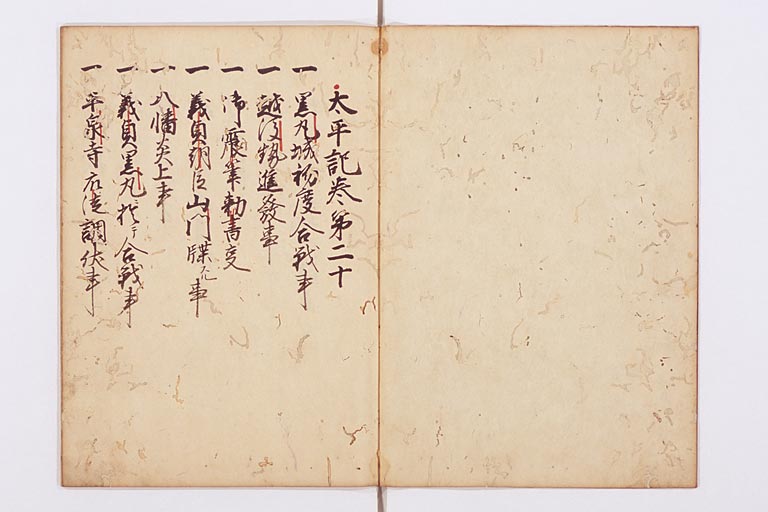 太平記巻第二十
一 黒丸城初度合戦事
一 越後勢進發事
一 御宸筆勅書事
一 義貞朝臣山門牒凡事
一 八幡炎上事
一 義貞黒丸於テ合戦事
一 平泉寺衆徒調伏事